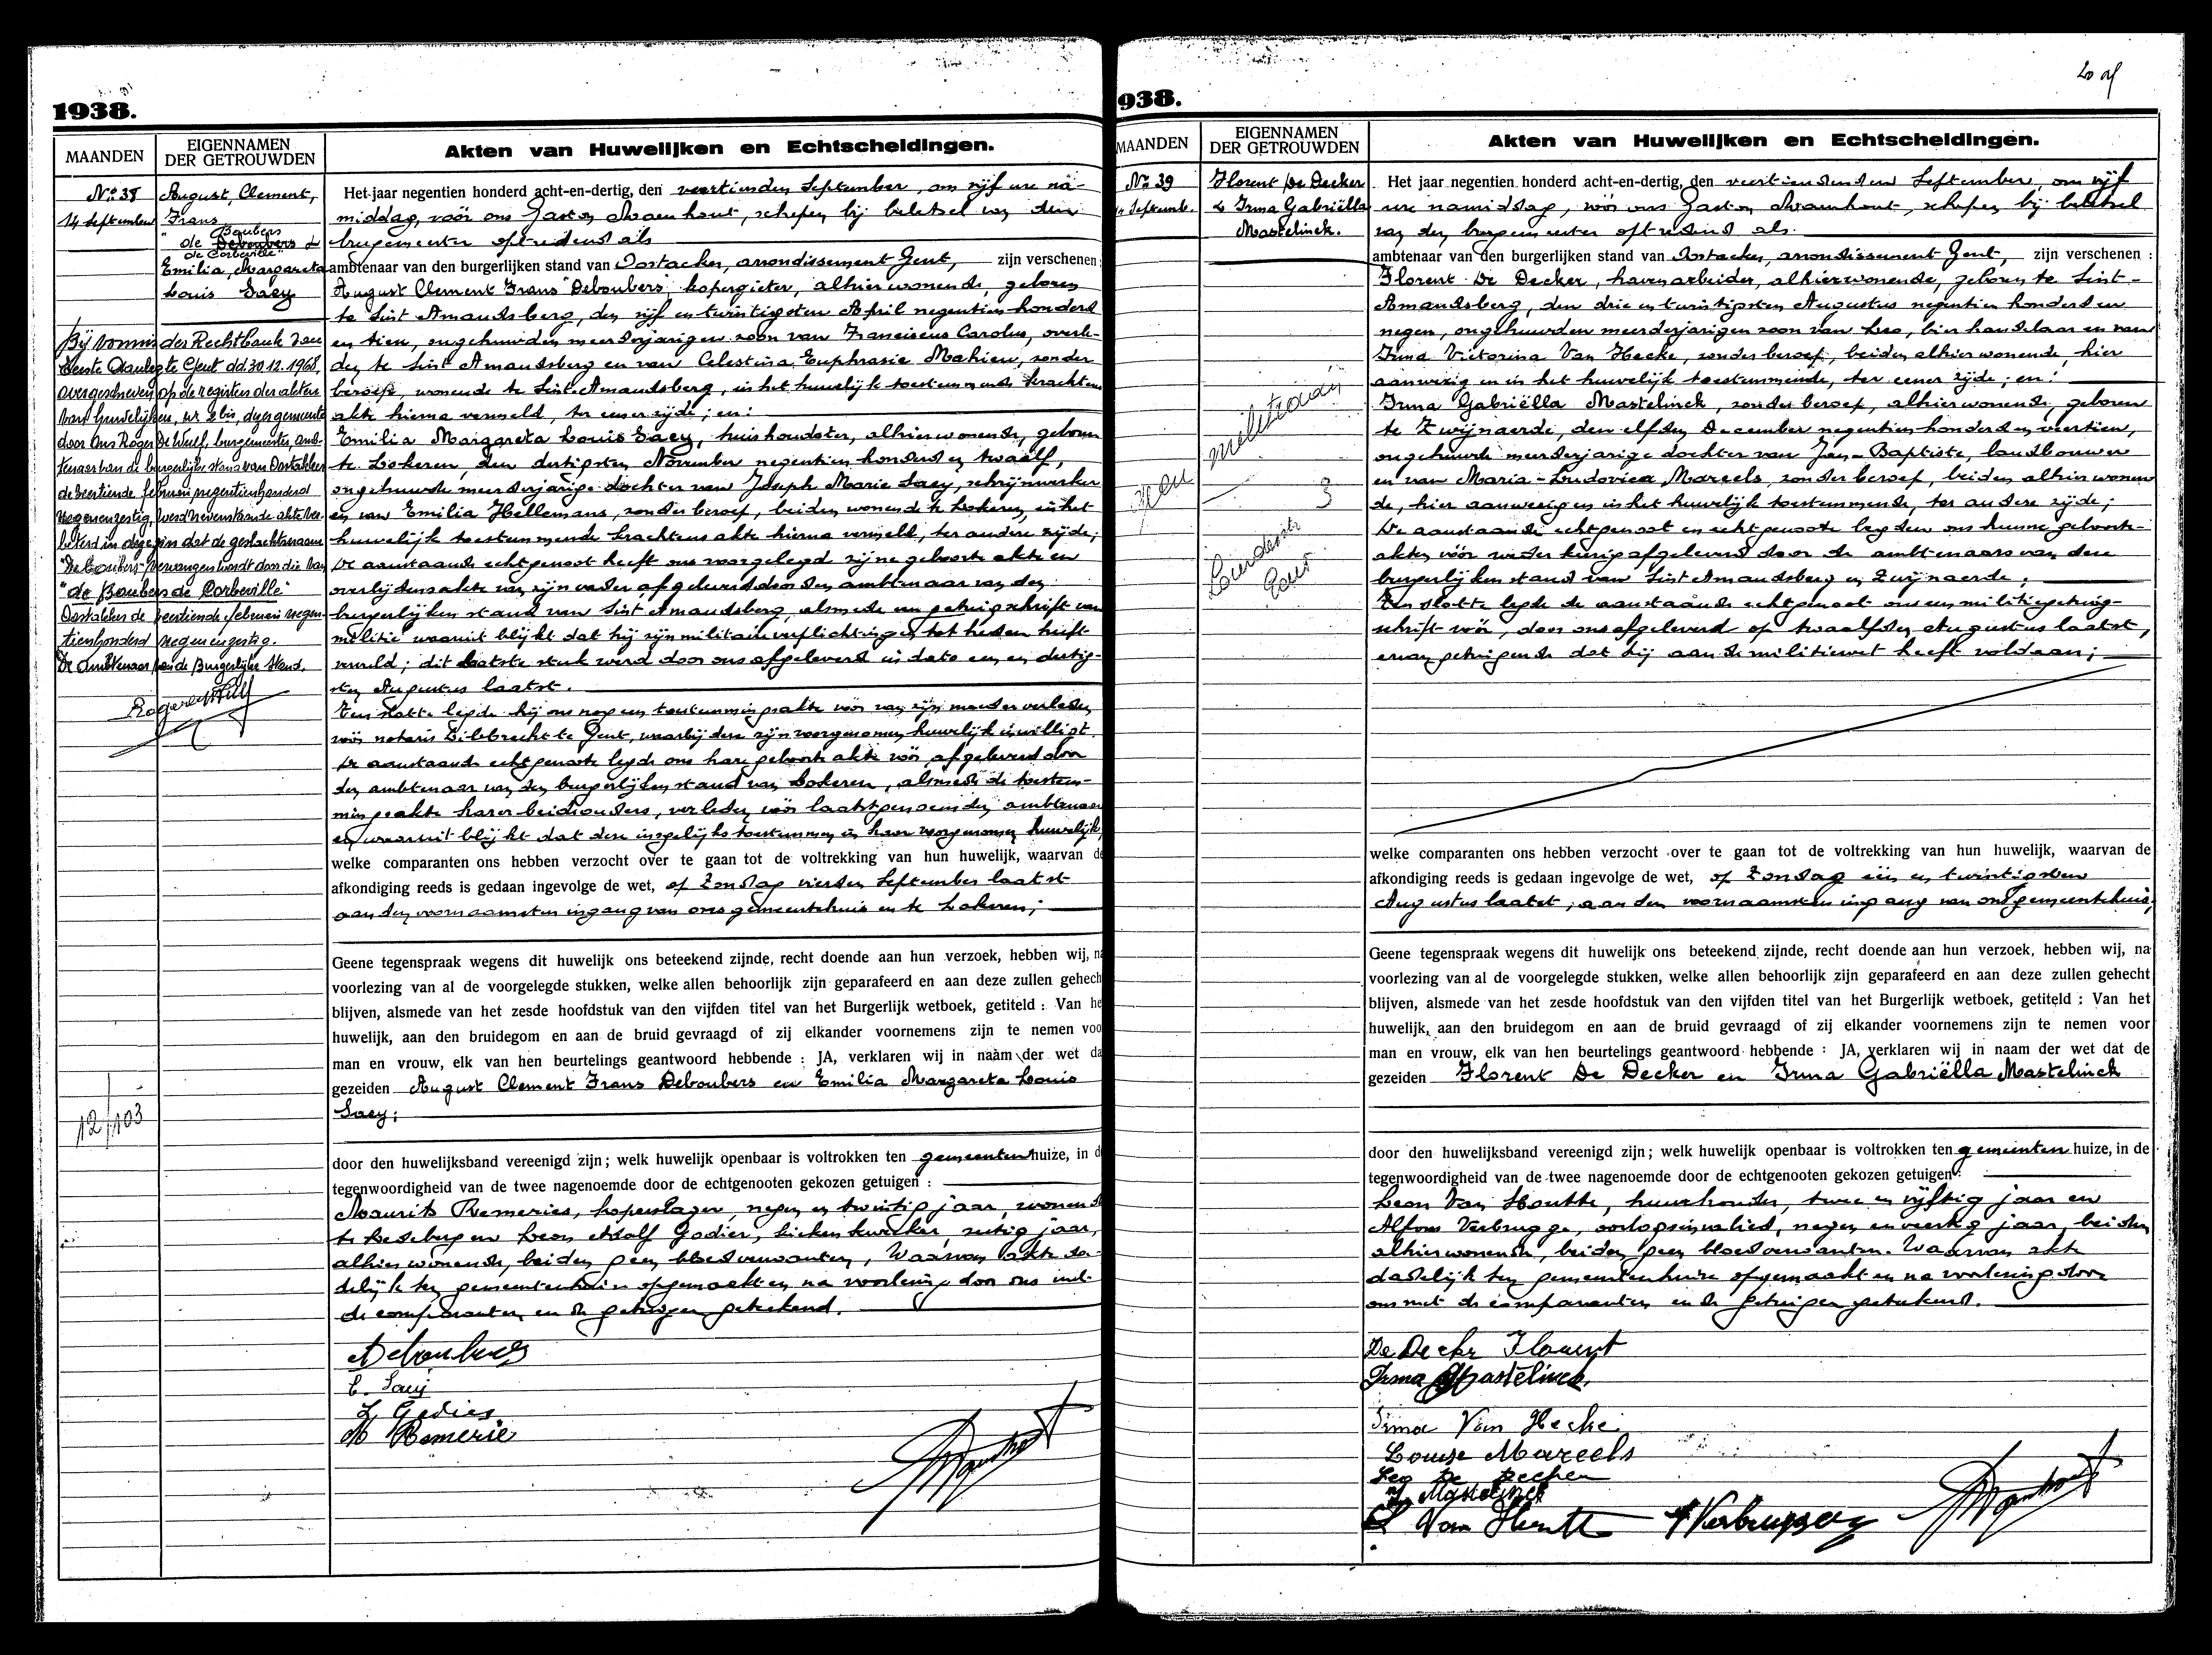 1938.
MAANDEN
EIGENNAMEN
DER GETROUWDEN
Akten van Huwelijken en Echtscheidingen.
No 38
14 September
August, Clement,
Frans
Boubers
de Deboubers &
de Corbeville"
Emilia, Margareta
Louis Saey
Bij vonnis der Rechtbank van
Eerste Aanleg te Gent dd. 30.12.1968,
overgeschreven op de registers der akten
van huwelijken, nr 2 bis, dezer gemeente
door Ons Roger De Wulf, burgemeester, amb-
tenaar van de burgerlijke stand van Oostakker
de veertiende februari negentienhonderd
negenenzestig, werd nevenstaande akte ver-
beterd in dezen zin dat de geslachtsnaam
"Deboubers" vervangen wordt door die van
"de Boubers de Corbeville"
Oostakker de veertiende februari negen-
tienhonderd negenenzestig.
De Ambtenaar van de Burgerlijke Stand,
12/103
Het jaar negentien honderd acht-en-dertig, den veertienden September, om vijf ure na-
middag, vóór ons Gaston Maenhout, schepen bij beletsel van den
burgemeester optredend als
ambtenaar van den burgerlijken stand van Oostacker, arrondissement Gent, zijn verschenen:
August Clement Frans Deboubers, kopergieter, alhier wonende, geboren
te Sint Amandsberg, den vijf en twintigsten April negentien honderd
en tien, ongehuwden meerderjarigen zoon van Franciscus Carolus, overle-
den te Sint Amandsberg en van Celestina Euphrasie Mahieu, zonder
beroep, wonende te Sint Amandsberg, in het huwelijk toestemmende krachtens
akte hierna vermeld, ter eener zijde; en:
Emilia Margareta Louis Saey, huishoudster, alhier wonende, geboren
te Lokeren, den dertigsten November negentien honderd en twaalf,
ongehuwde meerderjarige dochter van Joseph Marie Saey, schrijnwerker
en van Emilia Hellemans, zonder beroep, beiden wonende te Lokeren, in het
huwelijk toestemmende krachtens akte hierna vermeld, ter andere zijde;
De aanstaande echtgenoot heeft ons voorgelegd zijne geboorte akte en
overlijdensakte van zijn vader afgeleverd door den ambtenaar van den
burgerlijken stand van Sint Amandsberg, alsmede een getuigschrift van
militie waaruit blijkt dat hij zijn militaire verplichtingen tot heden heeft
vervuld; dit laatste stuk werd door ons afgeleverd in dato een en dertig-
sten Augustus laatst.
Ten slotte legde hij ons nog een toestemmingsakte vóór van zijn moeder verleden
vóór notaris Lilbrecht te Gent, waarbij deze zijn voorgenomen huwelijk inwilligt.
De aanstaande echtgenoote legde ons hare geboorte akte vóór, afgeleverd door
den ambtenaar van den burgerlijken stand van Lokeren, alsmede de toestem-
mingsakte harer beide ouders, verleden vóór laatstgenoemden ambtenaar
en waaruit blijkt dat deze insgelijks toestemmen in haar voorgenomen huwelijk,
welke comparanten ons hebben verzocht over te gaan tot de voltrekking van hun huwelijk, waarvan de
afkondiging reeds is gedaan ingevolge de wet, op Zondag vierden September laatst
aan den voornaamsten ingang van ons gemeentehuis en te Lokeren;
Geene tegenspraak wegens dit huwelijk ons beteekend zijnde, recht doende aan hun verzoek, hebben wij, na
voorlezing van al de voorgelegde stukken, welke allen behoorlijk zijn geparafeerd en aan deze zullen gehech
blijven, alsmede van het zesde hoofdstuk van den vijfden titel van het Burgerlijk wetboek, getiteld : Van he
huwelijk, aan den bruidegom en aan de bruid gevraagd of zij elkander voornemens zijn te nemen voo
man en vrouw, elk van hen beurtelings geantwoord hebbende : JA, verklaren wij in naam der wet da
gezeiden August Clement Frans Deboubers en Emilia Margareta Louis
Saey;
door den huwelijksband vereenigd zijn; welk huwelijk openbaar is voltrokken ten gemeentenhuize, in d
tegenwoordigheid van de twee nagenoemde door de echtgenooten gekozen getuigen :
Maurits Remeries, koperslager, negen en twintig jaar, wonende
te Destelbergen en Leon Adolf Godier, kiekenkweeker, zestig jaar,
alhier wonende, beiden geen bloedverwanten, Waarvan akte da-
delijk ten gemeentenhuize opgemaakt en na voorlezing door ons met
de comparanten en de getuigen geteekend.
A Deboubers
E. Saey
L Godier
M Remerie
938.
20 
MAANDEN
EIGENNAMEN
DER GETROUWDEN
Akten van Huwelijken en Echtscheidingen.
No 39
14 Septemb.
Florent De Decker
& Irma Gabriëlla
Mastelinck.
3
Gent
Het jaar negentien honderd acht-en-dertig, den veertiendenden September, om vijf
ure namiddag, vóór ons Gaston Maenhout, schepen bij beletsel
van den burgemeester optredend als.
ambtenaar van den burgerlijken stand van Oostacker, arrondissement Gent, zijn verschenen :
Florent De Decker, havenarbeider, alhier wonende, geboren te Sint-
Amandsberg, den drie en twintigsten Augustus negentien honderd en
negen, ongehuwden meerderjarigen zoon van Leo, bierhandelaar en van
Irma Victorina Van Hecke, zonder beroep, beiden alhier wonende, hier
aanwezig en in het huwelijk toestemmende, ter eener zijde; en:
Irma Gabriëlla Mastelinck, zonder beroep, alhier wonende, geboren
te Zwijnaerde, den elfden December negentien honderd en veertien,
ongehuwde meerderjarige dochter van Jan-Baptiste, landbouwer
en van Maria-Ludovica Mareels, zonder beroep, beiden alhier wonen
de, hier aanwezig en in het huwelijk toestemmende, ter andere zijde;
De aanstaande echtgenoot en echtgenoote legden ons hunne geboorte-
akten vóór wederkeurig afgeleverd door de ambtenaars van den
burgerlijken stand van Sint Amandsberg en Zwijnaerde;
Ten slotte legde de aanstaande echtgenoot ons een militiegetuig-
schrift vóór, door ons afgeleverd op twaalfden Augustus laatst,
ervan getuigende dat hij aan de militiewet heeft voldaan;
welke comparanten ons hebben verzocht over te gaan tot de voltrekking van hun huwelijk, waarvan de
afkondiging reeds is gedaan ingevolge de wet, op Zondag een en twintigsten
Augustus laatst, aan den voornaamsten ingang van ons gemeentehuis,
Geene tegenspraak wegens dit huwelijk ons beteekend zijnde, recht doende aan hun verzoek, hebben wij, na
voorlezing van al de voorgelegde stukken, welke allen behoorlijk zijn geparafeerd en aan deze zullen gehecht
blijven, alsmede van het zesde hoofdstuk van den vijfden titel van het Burgerlijk wetboek, getiteld : Van het
huwelijk, aan den bruidegom en aan de bruid gevraagd of zij elkander voornemens zijn te nemen voor
man en vrouw, elk van hen beurtelings geantwoord hebbende : JA, verklaren wij in naam der wet dat de
gezeiden Florent De Decker en Irma Gabriëlla Mastelinck
door den huwelijksband vereenigd zijn; welk huwelijk openbaar is voltrokken ten gemeentenhuize, in de
tegenwoordigheid van de twee nagenoemde door de echtgenooten gekozen getuigen :
Leon Van Houtte, huurhouder, twee en vijftig jaar en
Alfons Verbrugge, oorlogsinvalied, negen en veertig jaar, beiden
alhier wonende, beiden geen bloedverwanten. Waarvan akte
dadelijk ten gemeentenhuize opgemaakt en na voorlezing door
ons met de comparanten en de getuigen geteekend.
De Decker Florent
Irma Mastelinck
Irma Van Hecke
Louise Mareels
Leo De Decker
Mastelinck
L Van Houtte
A Verbrugge